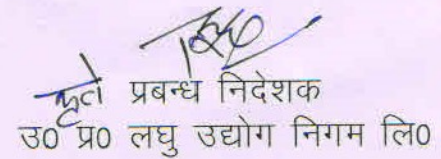 कृते प्रबन्ध निदेशक
उ0 प्र0 लघु उद्योग निगम लि0